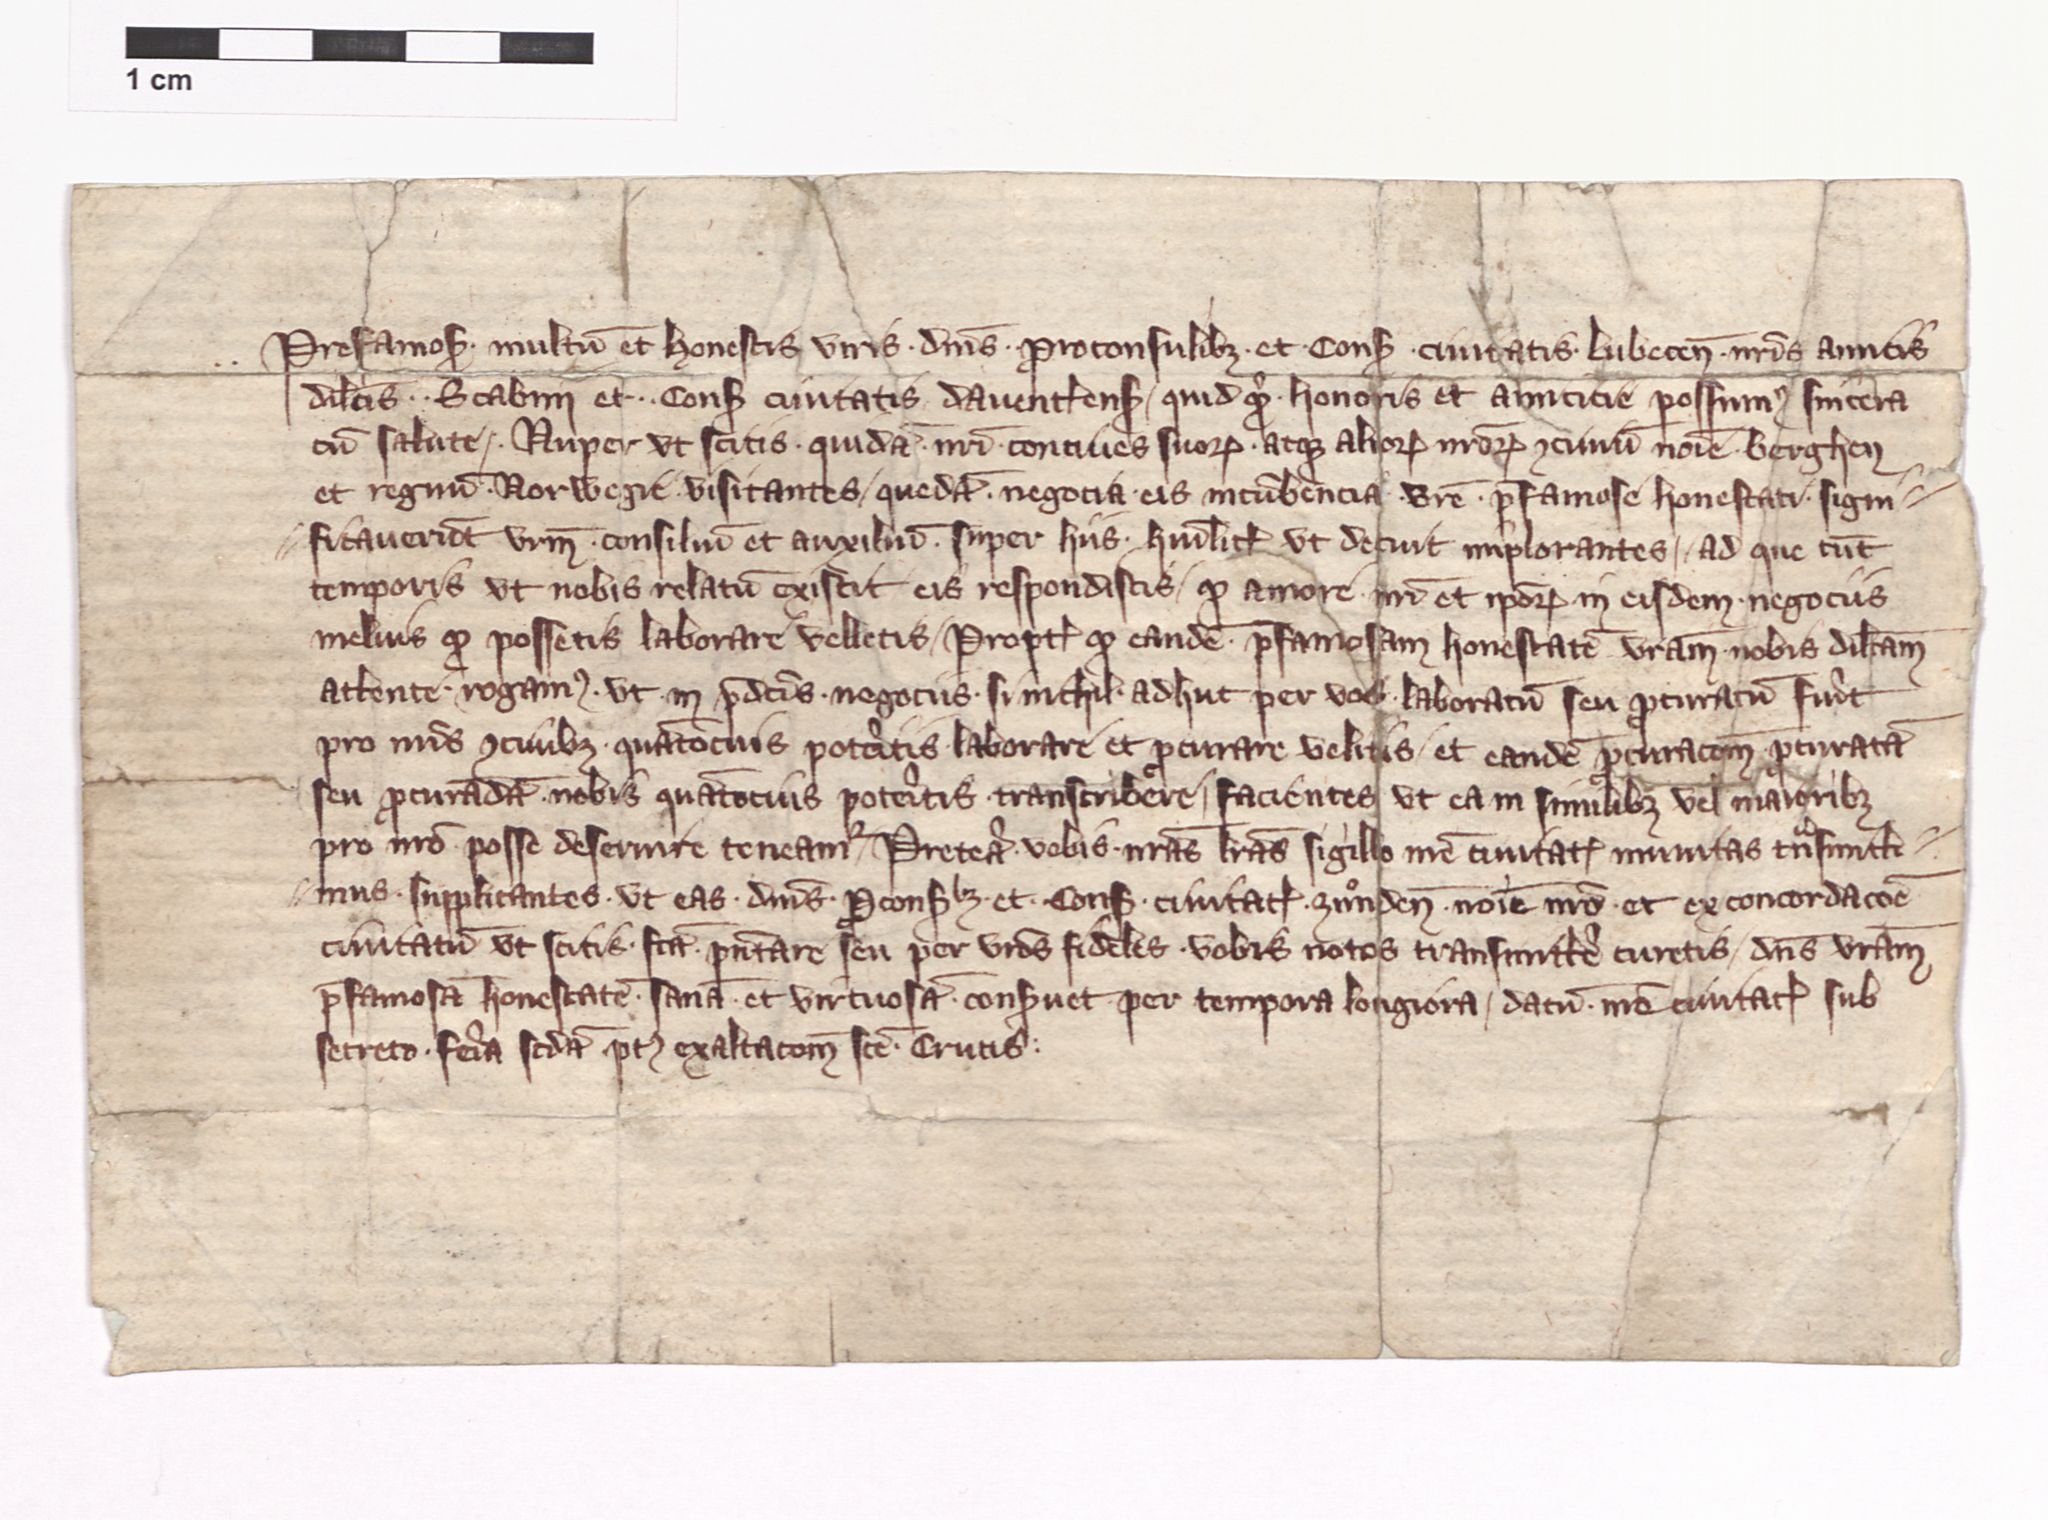 1 cm
.. Prefamos̄ · multū et honestis viris · dn̄is · Proconsulibꝫ · et · Cons̄ · ciuitatis · Lubecen̄ · nr̄is amicis
dilc̄is · · Scabini et · · Cons̄ ciuitatis dauentrens̄ / quid honoris et amicicie possumꝰ sincera
cū salute / · Nuper vt scitis · quidā · nr̄i · conciues suoꝝ · atqꝫ alioꝝ nr̄oꝝ ꝯciuiū noīe · berghen
et regnū · Norwegie · visitantes / quedā · negocia · eis incūbencia · vr̄e · p̄famose honestati · signi //
// ficauerūt vrm̄ · consiliū et auxiliū · super hiis · hūilit̄ vt decuit implorantes / ad que tūc
temporis vt nobis relatū existit eis respondistis / ꝙ amore nr̄i et ip̄oꝝ in eisdem · negociis
melius ꝙ possetis laborare velletis / Propt̄ ꝙ eandē · p̄famosam honestatē vrām · nobis dilc̄am
attente · rogamꝰ · vt · in p̄dc̄is · negociis · si nichil · adhuc per vos · laboratū seu ꝓcuratū fuĩt
pro nr̄is ꝯciuibꝫ · quātocius potĩtis laborare et ꝓcurare velitis / et eandē ꝓcuracōem ꝓcuratā
seu ꝓcurādā · nobis quātocius potĩtis transcribere / facientes vt ea in similibꝫ vel maioribꝫ
pro nr̄o posse deseruire teneamᷣ / Pretea̓ · vobis · nrās lrās sigillo nr̄e ciuitat̄ munitas tᷓnsmitti //
// mus · supplicantes · vt eas · dn̄is · ꝓcons̄bꝫ · et · Cons̄ · ciuitat̄ · zůnden̄ · noīe nr̄o · et ex concordacōe
ciuitatū vt scitis · fc̄ā p̄ntare seu per vr̄os fideles · vobis notos transmitte̓ curetis / dn̄s vrām
p̄famosā honestatē · sanā · et virtuosā · cons̄uet per tempora longiora / datū · nr̄e ciuitat̄ sub
secreto · feĩa scd̄a pꝰ exaltacōem sc̄e · Crucis :